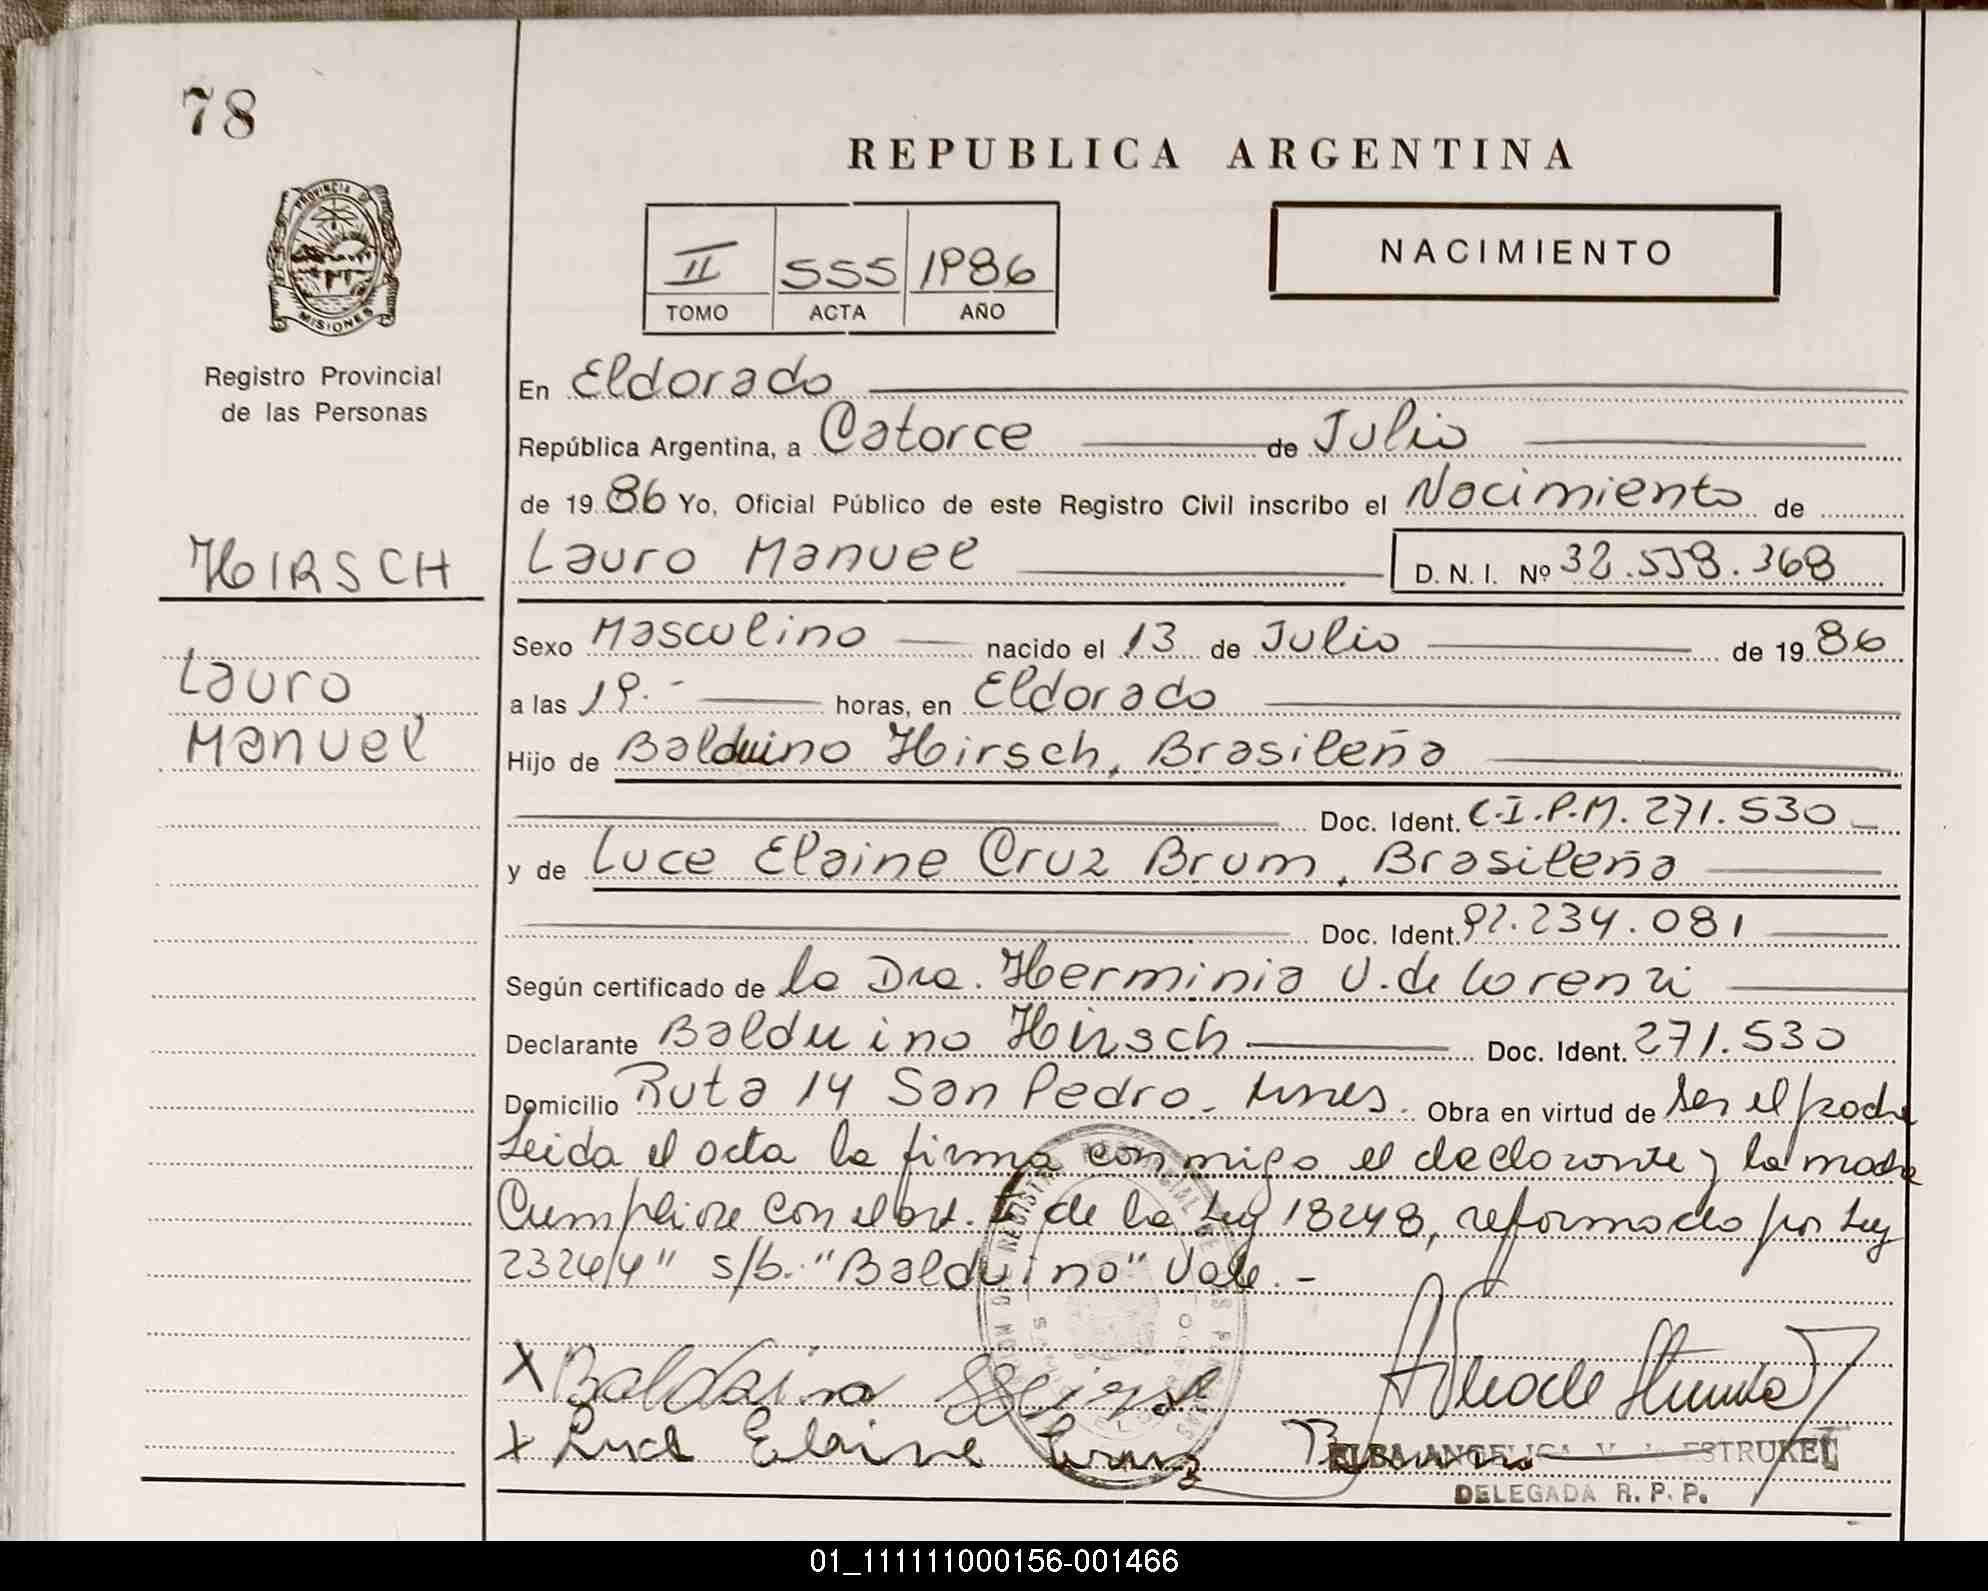 78
REPUBLICA ARGENTINA
PROVINCIA DE
MISIONES
II 555 1986
TOMO ACTA AÑO
NACIMIENTO
Registro Provincial
de las Personas
En Eldorado
República Argentina, a Catorce de Julio
de 1986 Yo, Oficial Público de este Registro Civil inscribo el Nacimiento de
HIRSCH
Lauro Manuel D. N. I. Nº 32.558.368
Sexo Masculino nacido el 13 de Julio de 1986
Lauro
a las 19.- horas, en Eldorado
Manuel
Hijo de Balduino Hirsch, Brasileña
Doc. Ident. C.I.P.M. 271.530
y de Luce Elaine Cruz Brum, Brasileña
Doc. Ident. 92.234.081
Según certificado de la Dra. Herminia V. de Lorenzi
Declarante Balduino Hirsch Doc. Ident. 271.530
Domicilio Ruta 14 San Pedro. Mnes. Obra en virtud de ser el padre
Leida el acta la firma conmigo el declarante y la madre
Cumpliose con el art. de la Ley 18248, reformado por Ley
s/b. "Balduino" Vale.-
X Balduino
X Luce Elaine Cruz Brum
ELBA ANGELICA V. ESTRUKEL
DELEGADA R. P. P.
01_111111000156-001466